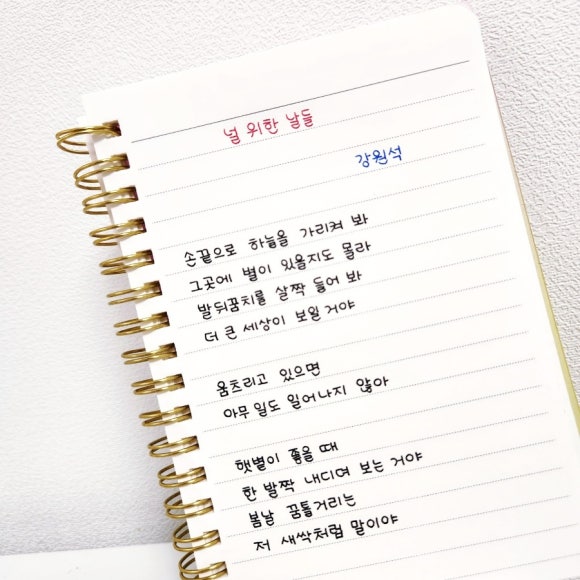 널 위한 날들
강원석
손끝으로 하늘을 가리켜 봐
그곳에 별이 있을지도 몰라
발뒤꿈치를 살짝 들어 봐
더 큰 세상이 보일 거야
움츠리고 있으면
아무 일도 일어나지 않아
햇볕이 좋을 때
한 발짝 내디뎌 보는 거야
봄날 꿈틀거리는
저 새싹처럼 말이야